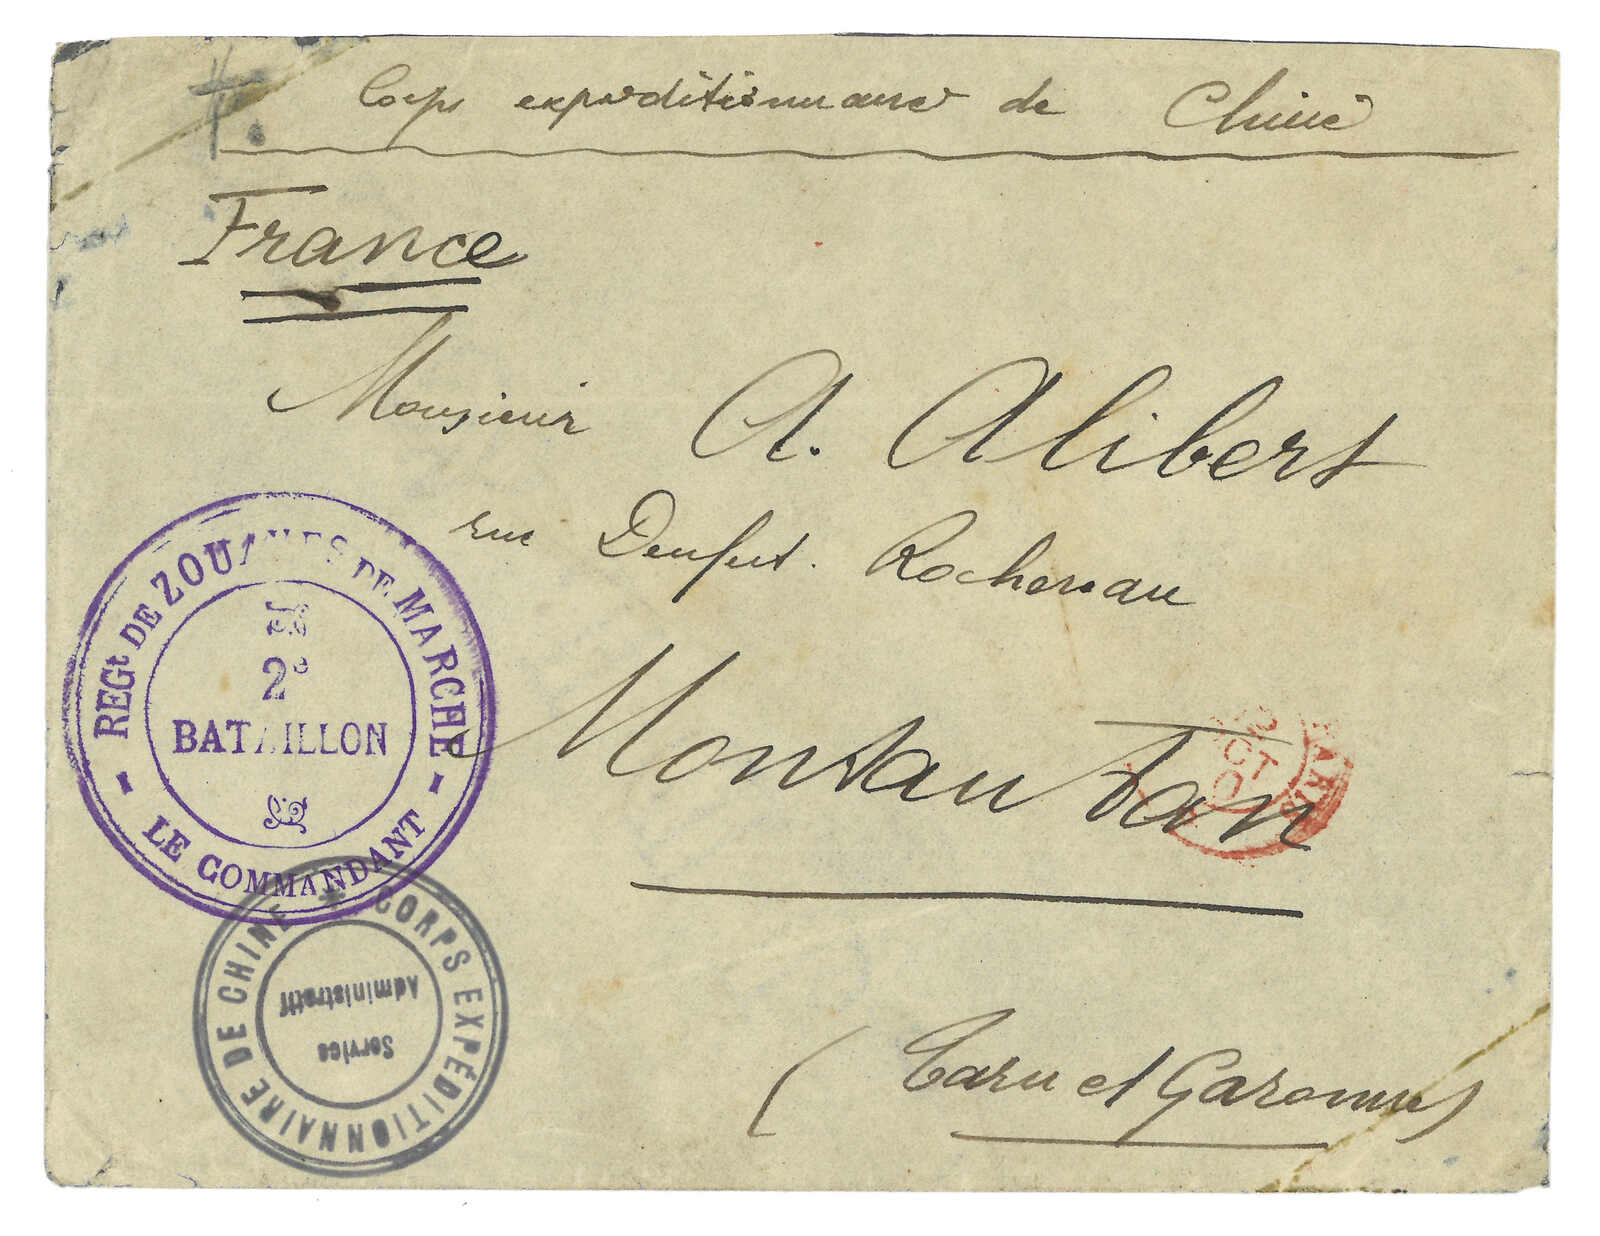 Corps expeditionnaire de Chine
France
Monsieur A. Alibert
rue Denfert. Rochereau
Montauban
(Tarn et Garonne)
REGt DE ZOUAVES DE MARCHE
2e
BATAILLON
LE COMMANDANT
CORPS EXPÉDITIONNAIRE DE CHINE
Service
Administratif
PARIS
OCT